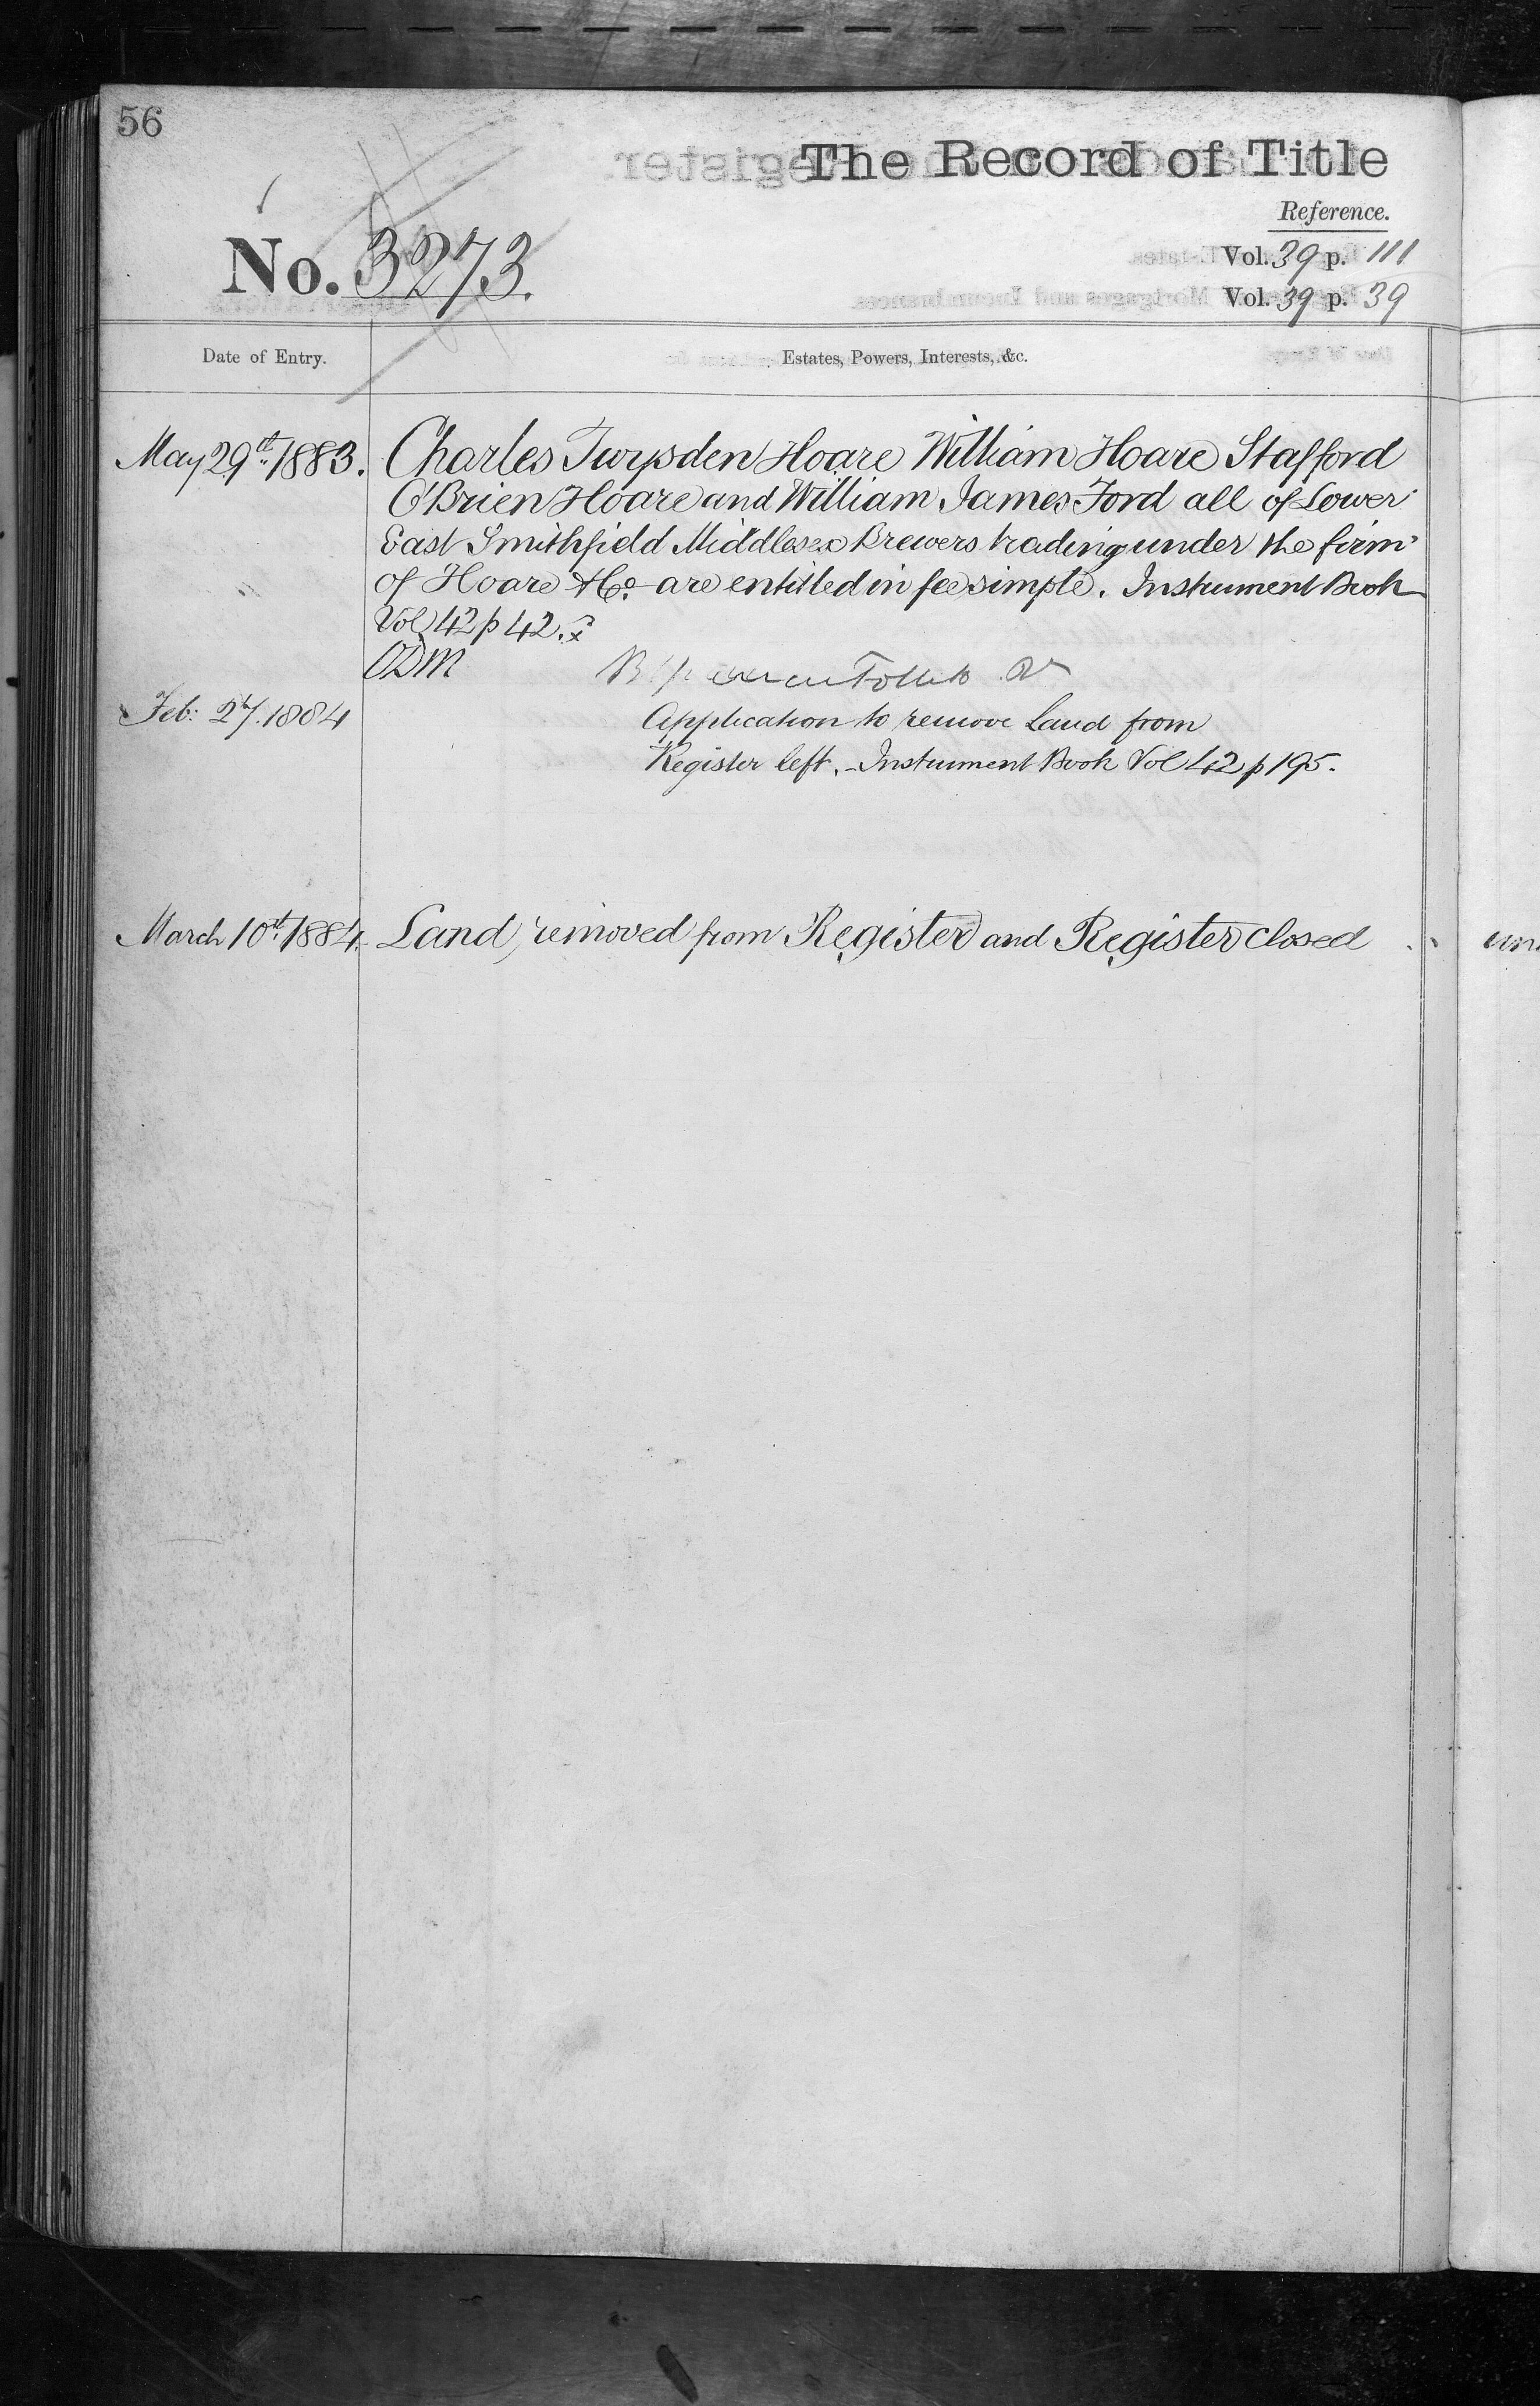 56
The Record of Title
Reference.
No. 3273.
Vol. 39 p. 111
Vol. 39 p. 39
Date of Entry.
Estates, Powers, Interests, &c.
May 29th. 1883. Charles Twysden Hoare William Hoare Stafford
O'Brien Hoare and William James Ford all of Lower
East Smithfield Middlesex Brewers trading under the firm
of Hoare & Co. are entitled in fee simple. Instrument Book
Vol 42 p 42.
ODM
Feb: 27. 1884 Application to remove Land from
Register left. - Instrument Book Vol 42 p 195.
March 10th. 1884. Land removed from Register and Register closed